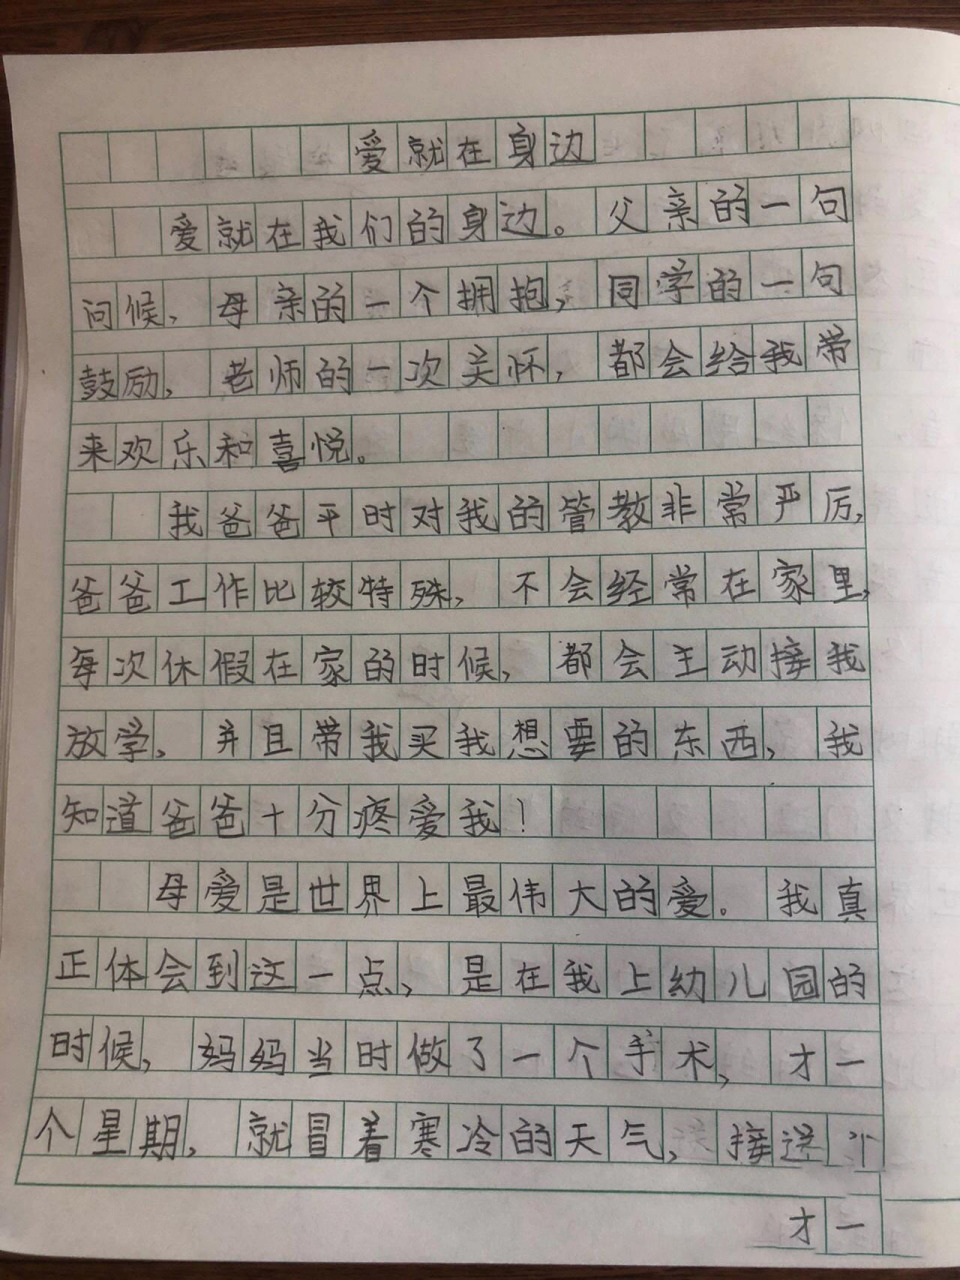 爱就在身边
爱就在我们的身边。父亲的一句
问候,母亲的一个拥抱,同学的一句
鼓励,老师的一次关怀,都会给我带
来欢乐和喜悦。
我爸爸平时对我的管教非常严厉,
爸爸工作比较特殊,不会经常在家里,
每次休假在家的时候,都会主动接我
放学,并且带我买我想要的东西,我
知道爸爸十分疼爱我!
母爱是世界上最伟大的爱。我真
正体会到这一点,是在我上幼儿园的
时候,妈妈当时做了一个手术,才一
个星期,就冒着寒冷的天气,接送
才一